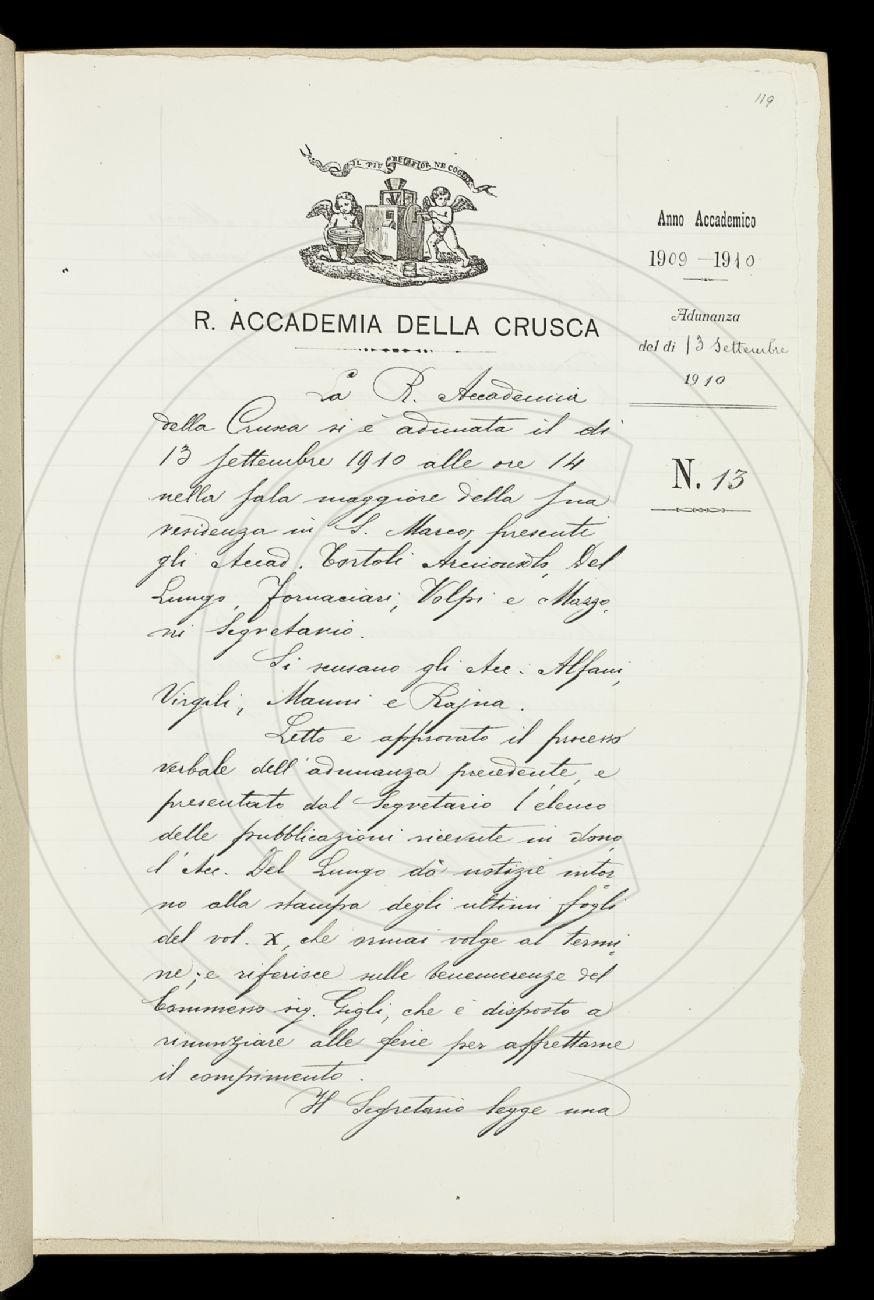 119
IL PIÙ BEL FIOR NE COGLIE
R. ACCADEMIA DELLA CRUSCA
Anno Accademico
1909 - 1910
Adunanza
del dì 13 Settembre
1910
N. 13
La R. Accademia
della Crusca si è adunata il dì
13 Settembre 1910 alle ore 14
nella sala maggiore della sua
residenza in S. Marco, presenti
gli Accad. Tortoli Arciconsolo, Del
Lungo, Fornaciari, Volpi e Mazzo-
ni Segretario.
Si scusano gli Acc. Alfani,
Virgili, Manni e Rajna.
Letto e approvato il processo
verbale dell'adunanza precedente, e
presentato dal Segretario l'elenco
delle pubblicazioni ricevute in dono,
l'Acc. Del Lungo dà notizie intor-
no alla stampa degli ultimi fogli
del vol. X, che ormai volge al termi-
ne; e riferisce sulle benemerenze del
Commesso sig. Gigli, che è disposto a
rinunziare alle ferie per affrettarne
il compimento.
Il Segretario legge una